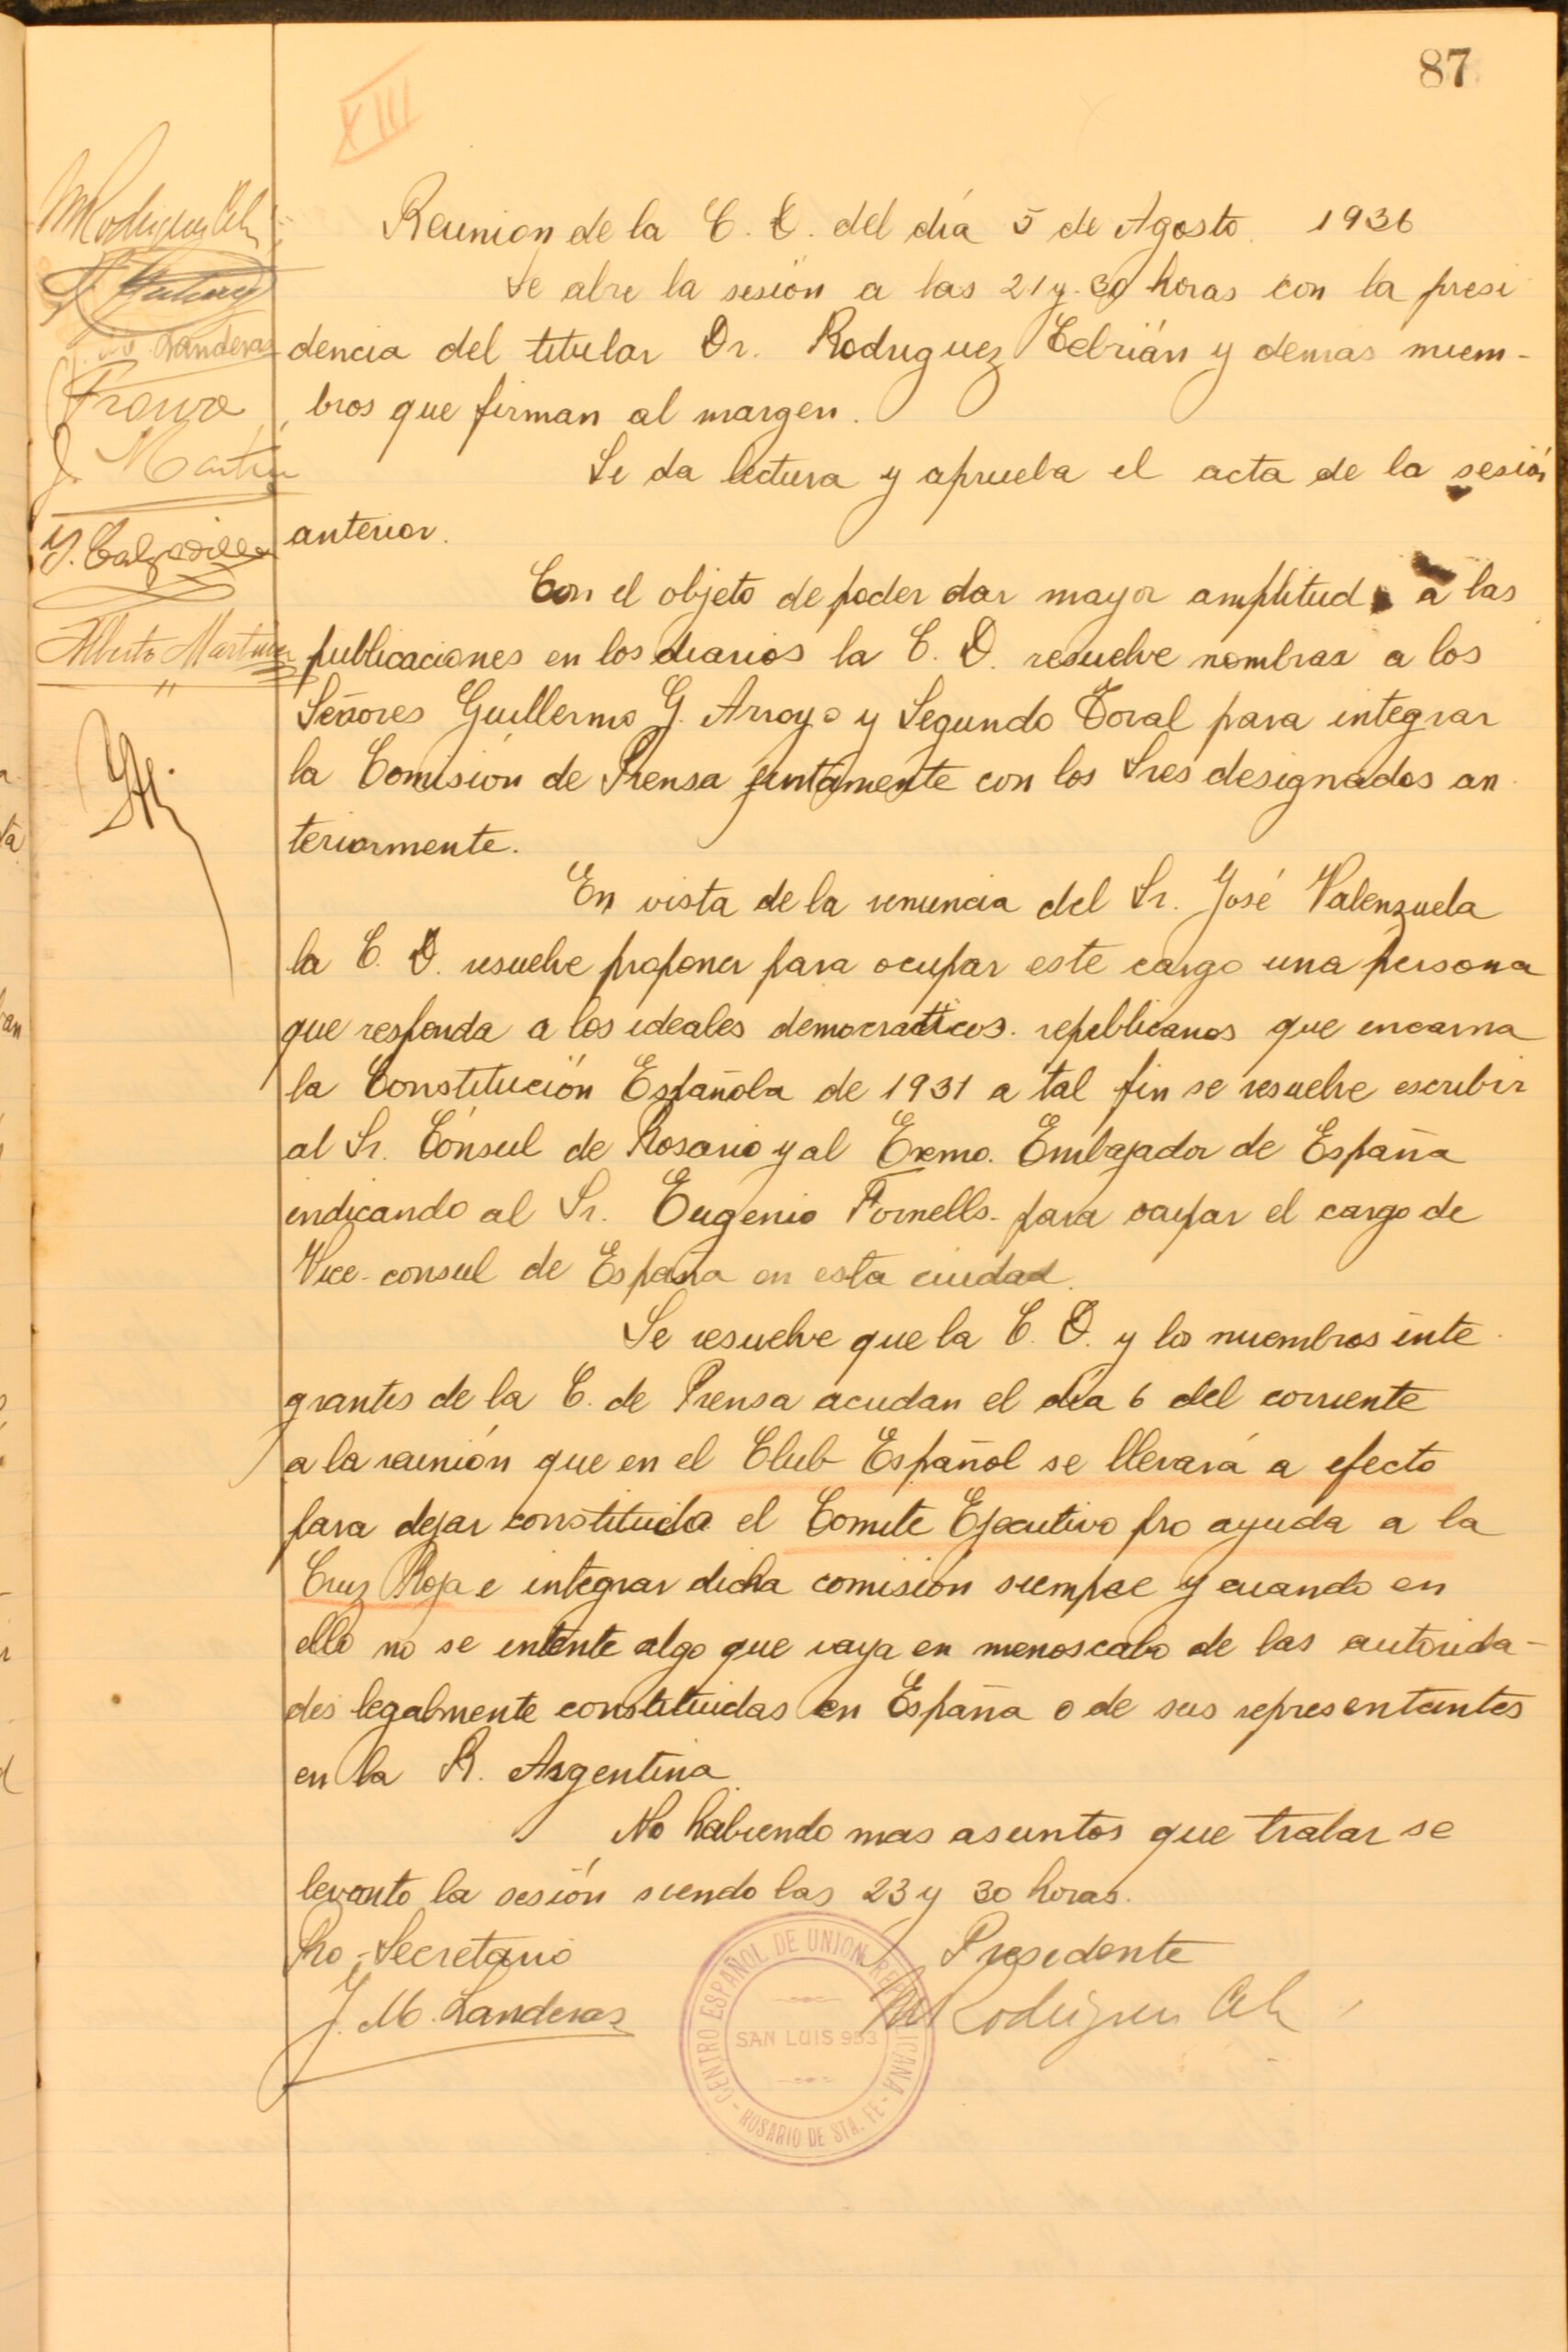 87
XIII
Reunion de la C. D. del día 5 de Agosto 1936
Se abre la sesión a las 21 y 30 horas con la presi
dencia del titular Dr. Rodriguez Cebrián y demas miem-
bros que firman al margen.
Se da lectura y aprueba el acta de la sesión
anterior.
Con el objeto de poder dar mayor amplitud a las
publicaciones en los diarios la C. D. resuelve nombrar a los
Señores Guillermo G. Arroyo y Segundo Toral para integrar
la Comisión de Prensa juntamente con los Sres designados an
teriormente.
En vista de la renuncia del Sr. José Valenzuela
la C. D. resuelve proponer para ocupar este cargo una persona
que responda a los ideales democraticos republicanos que encarna
la Constitución Española de 1931 a tal fin se resuelve escribir
al Sr. Cónsul de Rosario y al Exmo. Embajador de España
indicando al Sr. Eugenio Fornells para ocupar el cargo de
Vice-consul de España en esta ciudad.
Se resuelve que la C. D. y los miembros inte
grantes de la C. de Prensa acudan el día 6 del corriente
a la reunión que en el Club Español se llevará a efecto
para dejar constituida el Comite Ejecutivo pro ayuda a la
Cruz Roja e integrar dicha comisión siempre y cuando en
ello no se intente algo que vaya en menoscabo de las autorida-
des legalmente constituidas en España o de sus representantes
en la R. Argentina.
No habiendo mas asuntos que tratar se
levanto la sesión siendo las 23 y 30 horas.
Pro-Secretario Presidente
J. M. Landeras M Rodriguez Ceb
CENTRO ESPAÑOL DE UNION REPUBLICANA
SAN LUIS 953
- ROSARIO DE STA. FE -
M Rodriguez Ceb
J. M. Landeras
Franco
J. Martin
Y. Calzadilla
Alberto Martinez